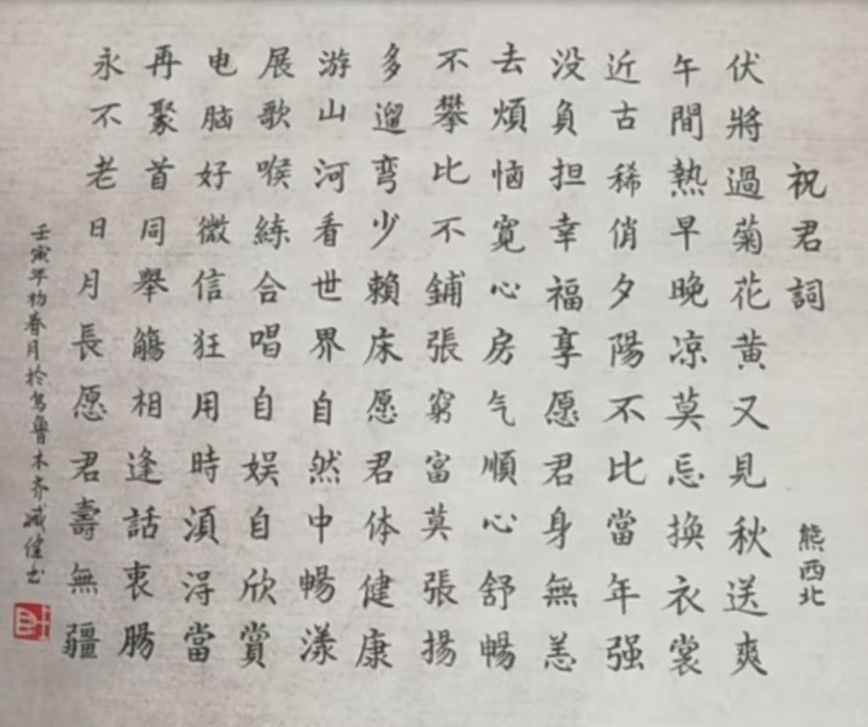 祝君詞
熊西北
伏將過菊花黄又見秋送爽
午間熱早晚凉莫忘換衣裳
近古稀俏夕陽不比當年强
没負担幸福享愿君身無恙
去煩恼寛心房气順心舒暢
不攀比不鋪張窮富莫張揚
多遛弯少賴床愿君体健康
游山河看世界自然中暢漾
展歌喉練合唱自娱自欣賞
电脑好微信狂用時須淂當
再聚首同舉觴相逢話衷腸
永不老日月長愿君壽無疆
壬寅年初春月於烏魯木齐臧健书